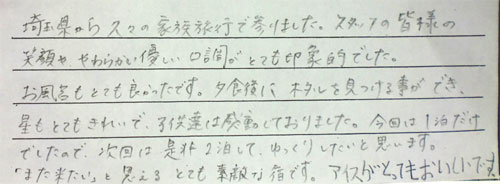 埼玉県から久々の家族旅行で参りました。スタッフの皆様の
笑顔や、やわらかい優しい口調がとても印象的でした。
お風呂もとても良かったです。夕食後にホタルを見つける事ができ、
星もとてもきれいで、子供達は感動しておりました。今回は1泊だけ
でしたので、次回は是非2泊して、ゆっくりしたいと思います。
「また来たい」と思える とても素敵な宿です。アイスがとってもおいしいです。